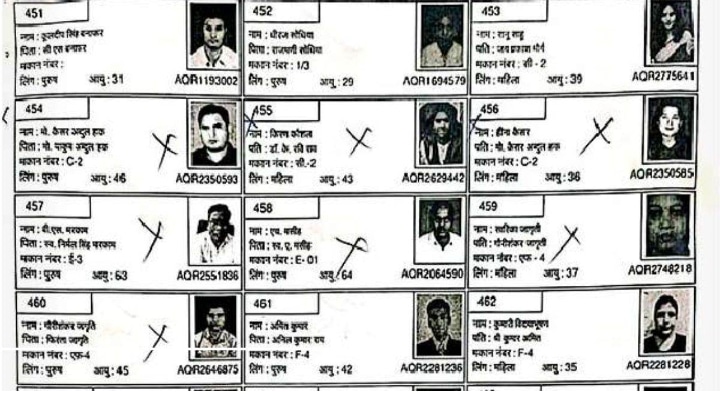 451
नाम : कुलदीप सिंह बनाफर
पिता : सी एस बनाफर
मकान नंबर :
लिंग : पुरुष आयु : 31 AQR1193002
452
नाम : धीरज सोधिया
पिता : राजमणी सोधिया
मकान नंबर : 1/3
लिंग : पुरुष आयु : 29 AQR1694579
453
नाम : रानू साहू
पति : जय प्रकाश मौर्य
मकान नंबर : सी - 2
लिंग : महिला आयु : 39 AQR2775641
454
नाम : मो. कैसर अब्दुल हक
पिता : मो. याकूब अब्दुल हक
मकान नंबर : C-2
लिंग : पुरुष आयु : 46 AQR2350593
455
नाम : किरण कौशल
पति : डॉ. के. रवि राव
मकान नंबर : सी.-2
लिंग : महिला आयु : 43 AQR2629442
456
नाम : हीना कैसर
पति : मो. कैसर अब्दुल हक
मकान नंबर : C-2
लिंग : महिला आयु : 36 AQR2350585
457
नाम : बी.एस. मरकाम
पिता : स्व. निर्मल सिंह मरकाम
मकान नंबर : ई-3
लिंग : पुरुष आयु : 63 AQR2551836
458
नाम : एच. मसीह
पिता : स्व. ए. मसीह
मकान नंबर : E- 01
लिंग : पुरुष आयु : 64 AQR2064590
459
नाम : सारिका जागृती
पति : गौरीशंकर जागृती
मकान नंबर : एफ - 4
लिंग : महिला आयु : 37 AQR2748218
460
नाम : गौरीशंकर जागृति
पिता : फिरंता जागृति
मकान नंबर : एफ-4
लिंग : पुरुष आयु : 45 AQR2646875
461
नाम : अमित कुमार
पिता : अनिल कुमार राय
मकान नंबर : F-4
लिंग : पुरुष आयु : 42 AQR2281236
462
नाम : कुमारी विद्याभूषण
पति : श्री कुमार अमित
मकान नंबर : F-4
लिंग : महिला आयु : 35 AQR2281228